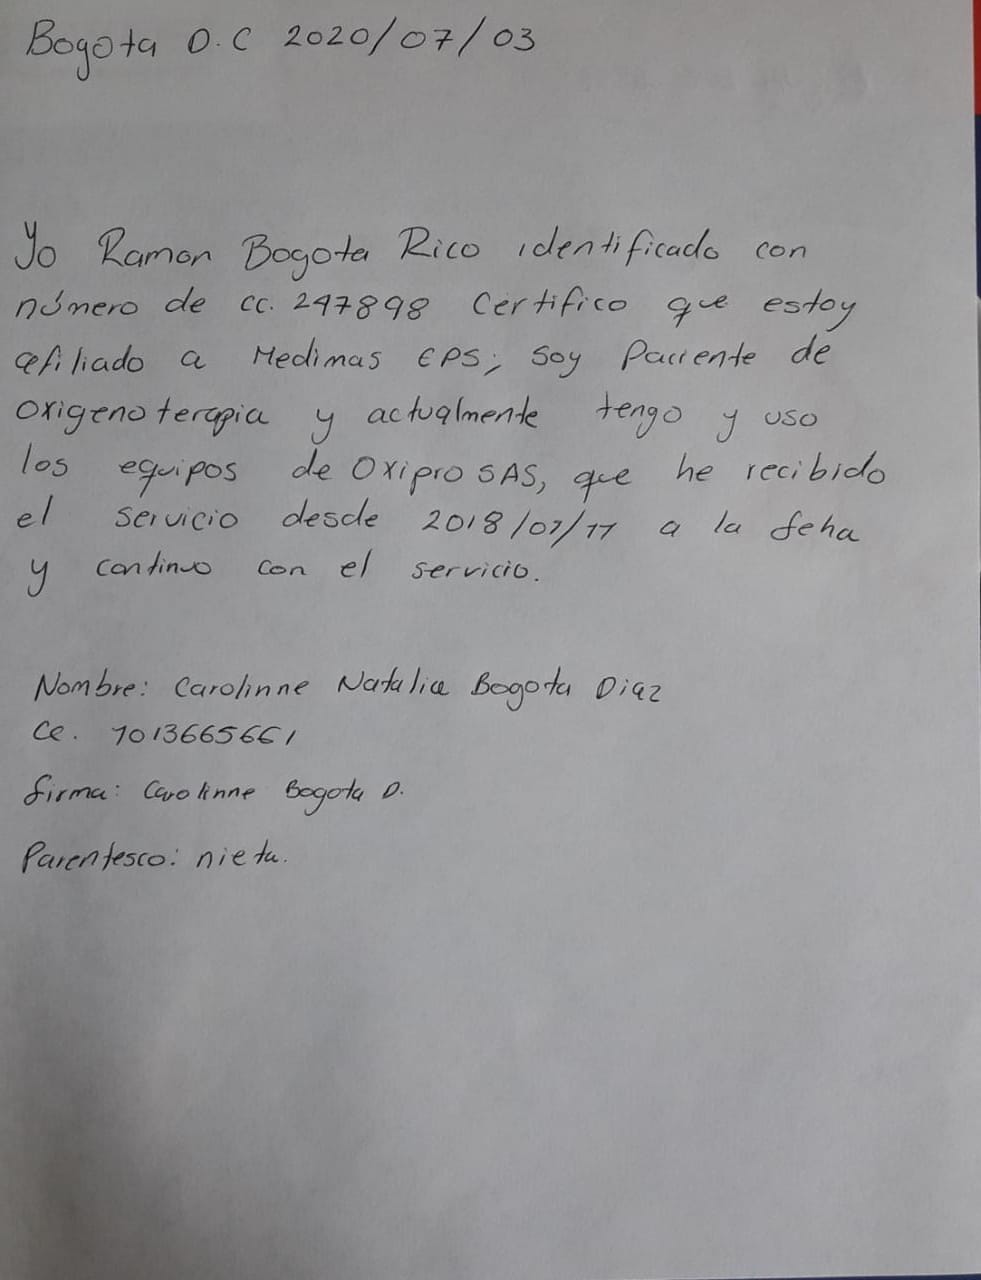 Bogota D.C 2020/07/03
Yo Ramon Bogota Rico identificado con
número de cc. 247898 Certifico que estoy
afiliado a Medimas EPS; soy Paciente de
oxigenoterapia y actualmente tengo y uso
los equipos de Oxipro SAS, que he recibido
el servicio desde 2018/07/17 a la feha
y continuo con el servicio.
Nombre: Carolinne Natalia Bogota Diaz
Cc. 1013665661
firma: Carolinne Bogota D.
Parentesco: nieta.